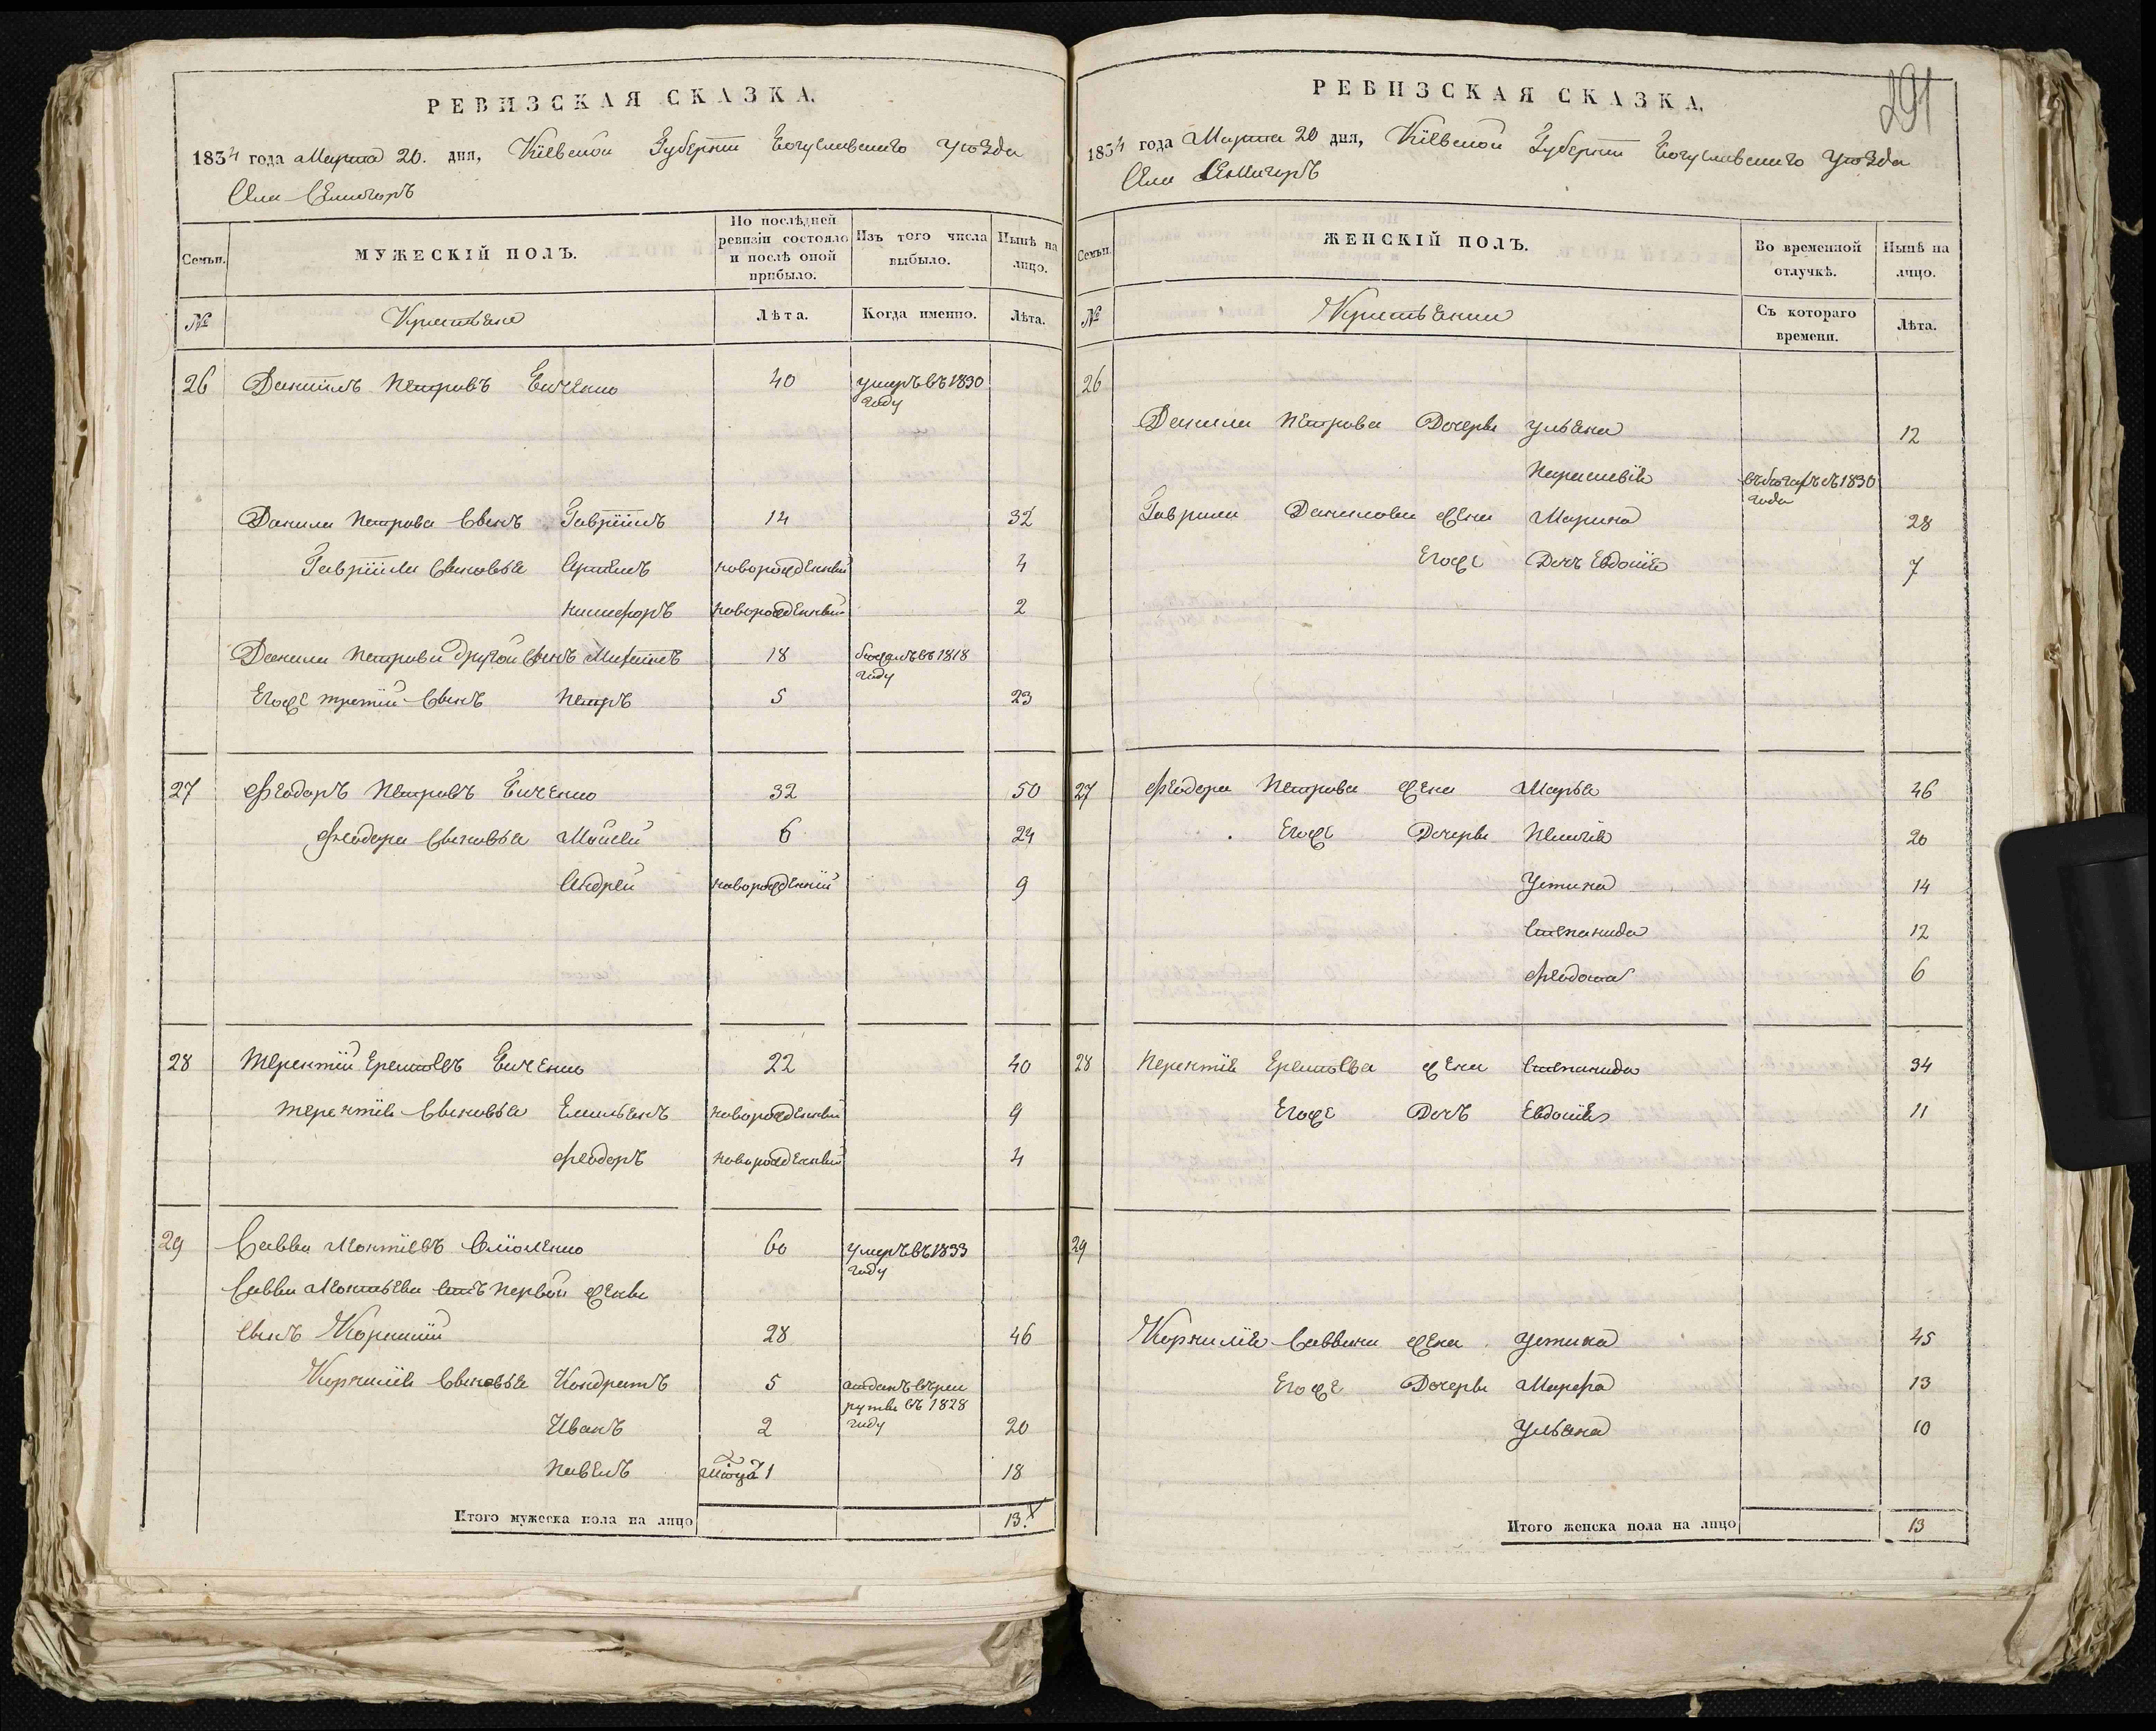 РЕВИЗСКАЯ СКАЗКА.
1834 года Марта 20. дня, Кіевской Губерніи Богуславского Уѣзда
Села Семигоръ
Семьи.
МУЖЕСКІЙ ПОЛЪ.
По послѣдней ревизіи состояло и послѣ оной прибыло.
Изъ того числа выбыло.
Нынѣ на лицо.
№
Крестьяне
Лѣта.
Когда именно.
Лѣта.
26 Даніилъ Петровъ 40 умеръ въ 1830
году
Данила Петрова Сынъ Гавріилъ 14 32
Гавріила Сыновья Артемъ новорожденный 4
Никифоръ новорожденный 2
Данила Петрова другой Сынъ Михаилъ 18 бежалъ въ 1818
году
Егоже третій Сынъ Петръ 5 23
27 Феодоръ Петровъ 32 50
Феодора Сыновья Мойсей 6 24
Андрей новорожденній 9
28 Терентій 22 40
Терентія Сыновья Емильянъ новорожденный 9
Феодоръ новорожденный 4
29 Савва Леонтіевъ 60 умеръ въ 1833
году
Савви Леонтьева отъ первой жены
сынъ Корнилій 28 46
Корнилія Сыновья Кондратъ 5 отданъ въ рек
руты въ 1828
Иванъ 2 году 20
Павелъ 1 18
Итого мужеска пола на лицо 13.
РЕВИЗСКАЯ СКАЗКА.
291
1834 года Марта 20 дня, Кіевской Губерніи Богуславского Уѣзда
Села Семигоръ
Семьи.
ЖЕНСКІЙ ПОЛЪ.
Во временной отлучкѣ.
Нынѣ на лицо.
№
Крестьянки
Съ котораго времени.
Лѣта.
26
Данила Петрова Дочери Ульяна 12
Параскевія 1830
года
Гаврила Данилова жена Марина 28
Егоже Дочъ Евдокія 7
27 Феодора Петрова жена Марья 46
Егоже Дочери Пелагія 20
Устина 14
Степанида 12
Феодота 6
28 Терентія жена Степанида 34
Егоже Дочъ Евдокія 11
29
Корнилія Саввина жена Устина 45
Егоже Дочери Марфа 13
Ульяна 10
Итого женска пола на лицо 13